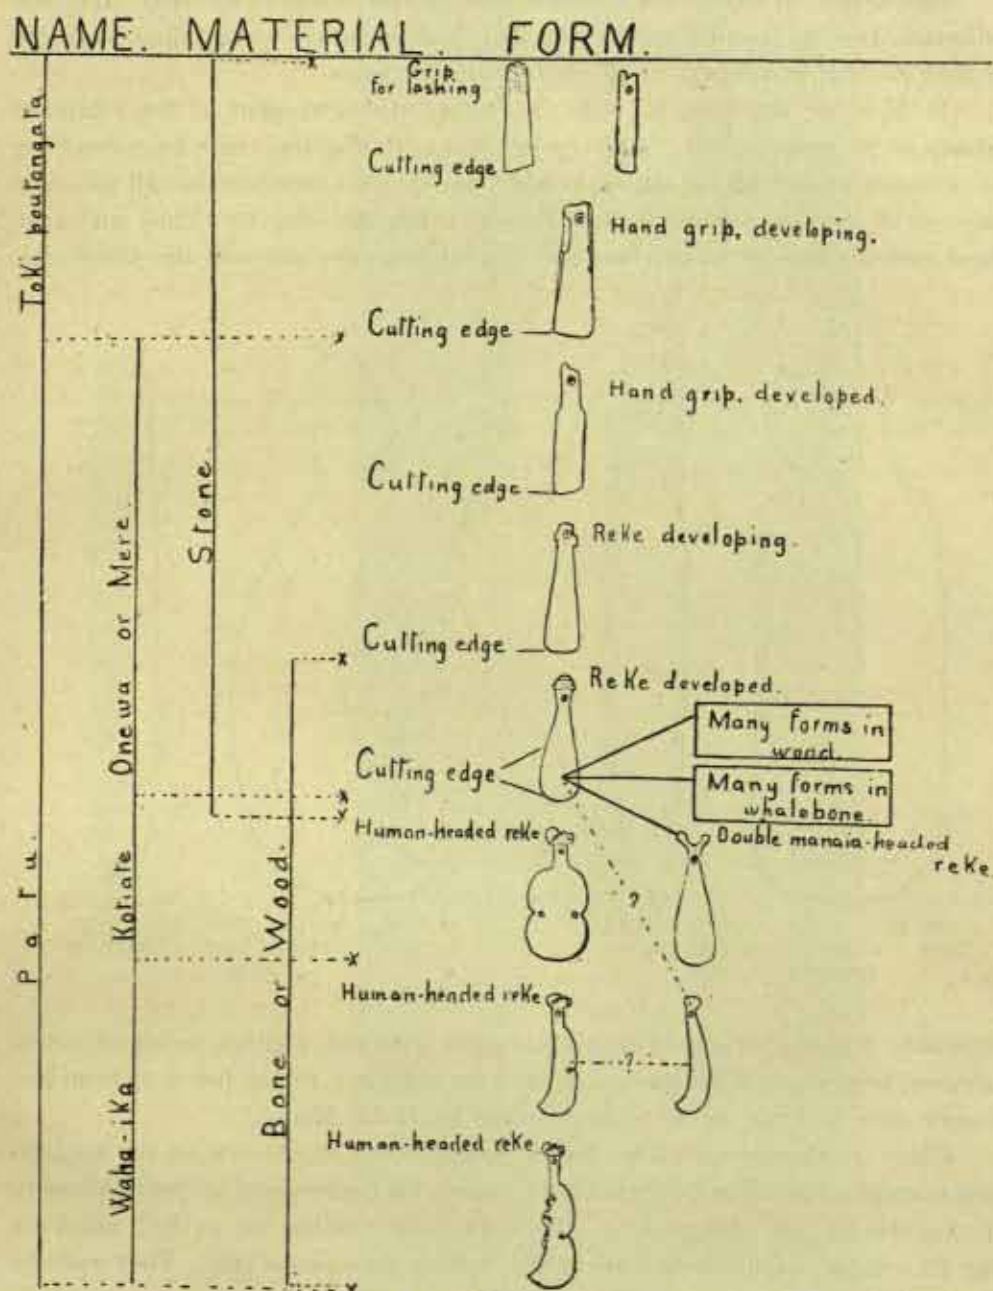 NAME. MATERIAL. FORM.
Toki poutangata
Patu.
Onewa or Mere.
Kotiate
Waha-ika
Stone
Bone or Wood.
Grip
for lashing
Cutting edge
Hand grip, developing.
Cutting edge
Hand grip, developed.
Cutting edge
Reke developing.
Cutting edge
Reke developed.
Many forms in
wood.
Cutting edge
Many forms in
whalebone.
Human-headed reke
Double manaia-headed
reke
?
Human-headed reke
?
Human-headed reke